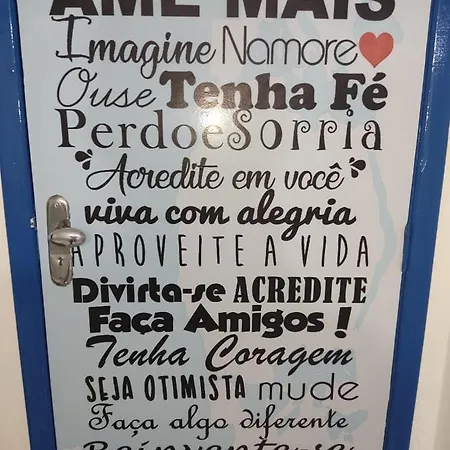 AME MAIS
Imagine Namore
Ouse Tenha Fé
Perdoe Sorria
Acredite em você
viva com alegria
APROVEITE A VIDA
Divirta-se ACREDITE
Faça Amigos!
Tenha Coragem
SEJA OTIMISTA mude
Faça algo diferente
Reinvente-se